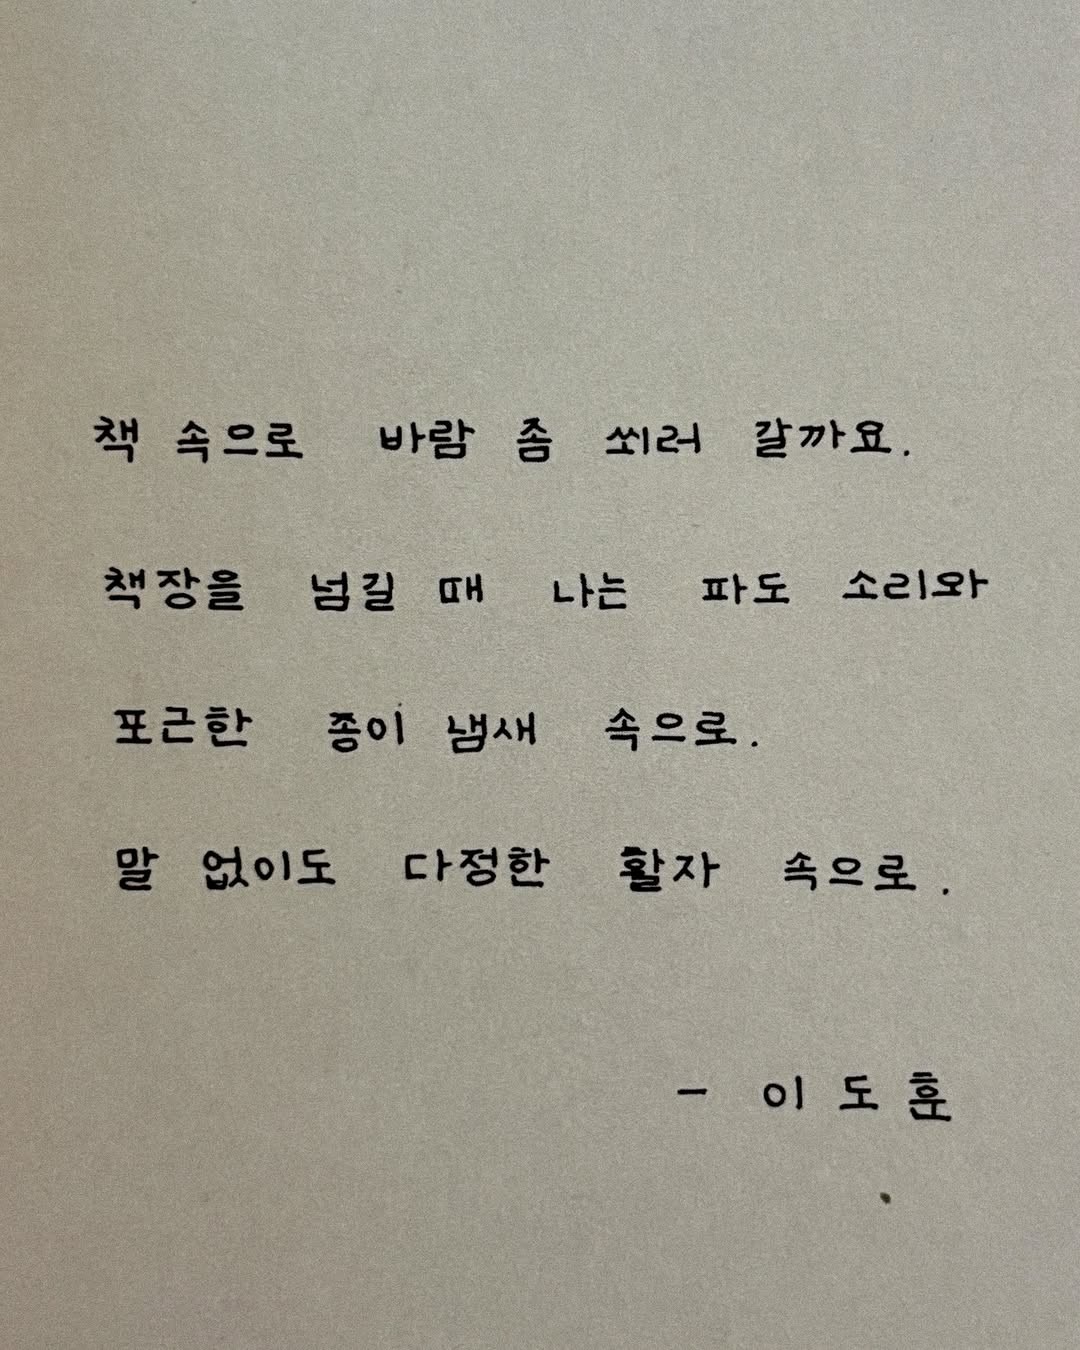 책 속으로 바람 좀 쐬러 갈까요.
책장을 넘길 때 나는 파도 소리와
포근한 종이 냄새 속으로.
말 없이도 다정한 활자 속으로.
- 이도훈